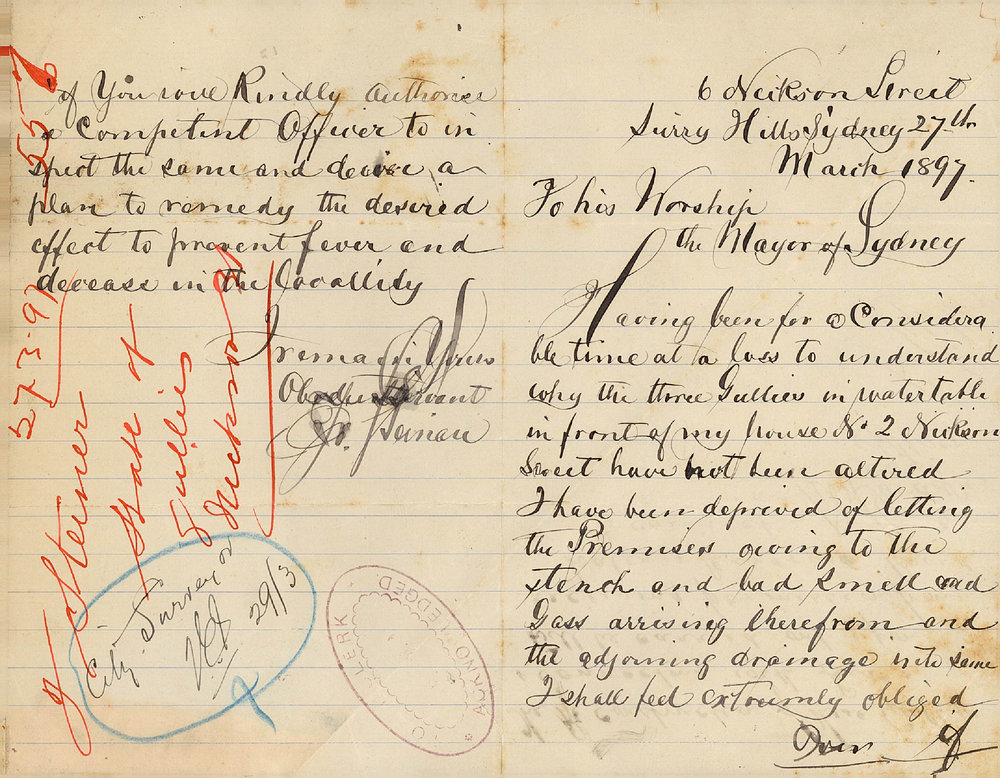 6 Nickson Street
Surry Hills Sydney 27th
March 1897.
To his Worship
the Mayor of Sydney
Having been for a Considera
ble time at a loss to understand
why the three Gullies in watertable
in front of my house No 2 Nickson
Street have not been altered
I have been deprived of letting
the Premises owing to the
stench and bad smell and
Gass arrising therefrom and
the adjoining drainage into same
I shall feel extreumly obliged
Over if
if You will Kindly authorise
a Competent Officer to in
spect the same and devise a
plan to remedy the desired
effect to prevent fever and
decease in the locallity
I remain Yours
Obedient Servant
J. Steiner
557
27.3.97
J Steiner
State of
Gullies
Nickson St
City Surveyor
29/3
CLERK
ACKNOWLEDGED